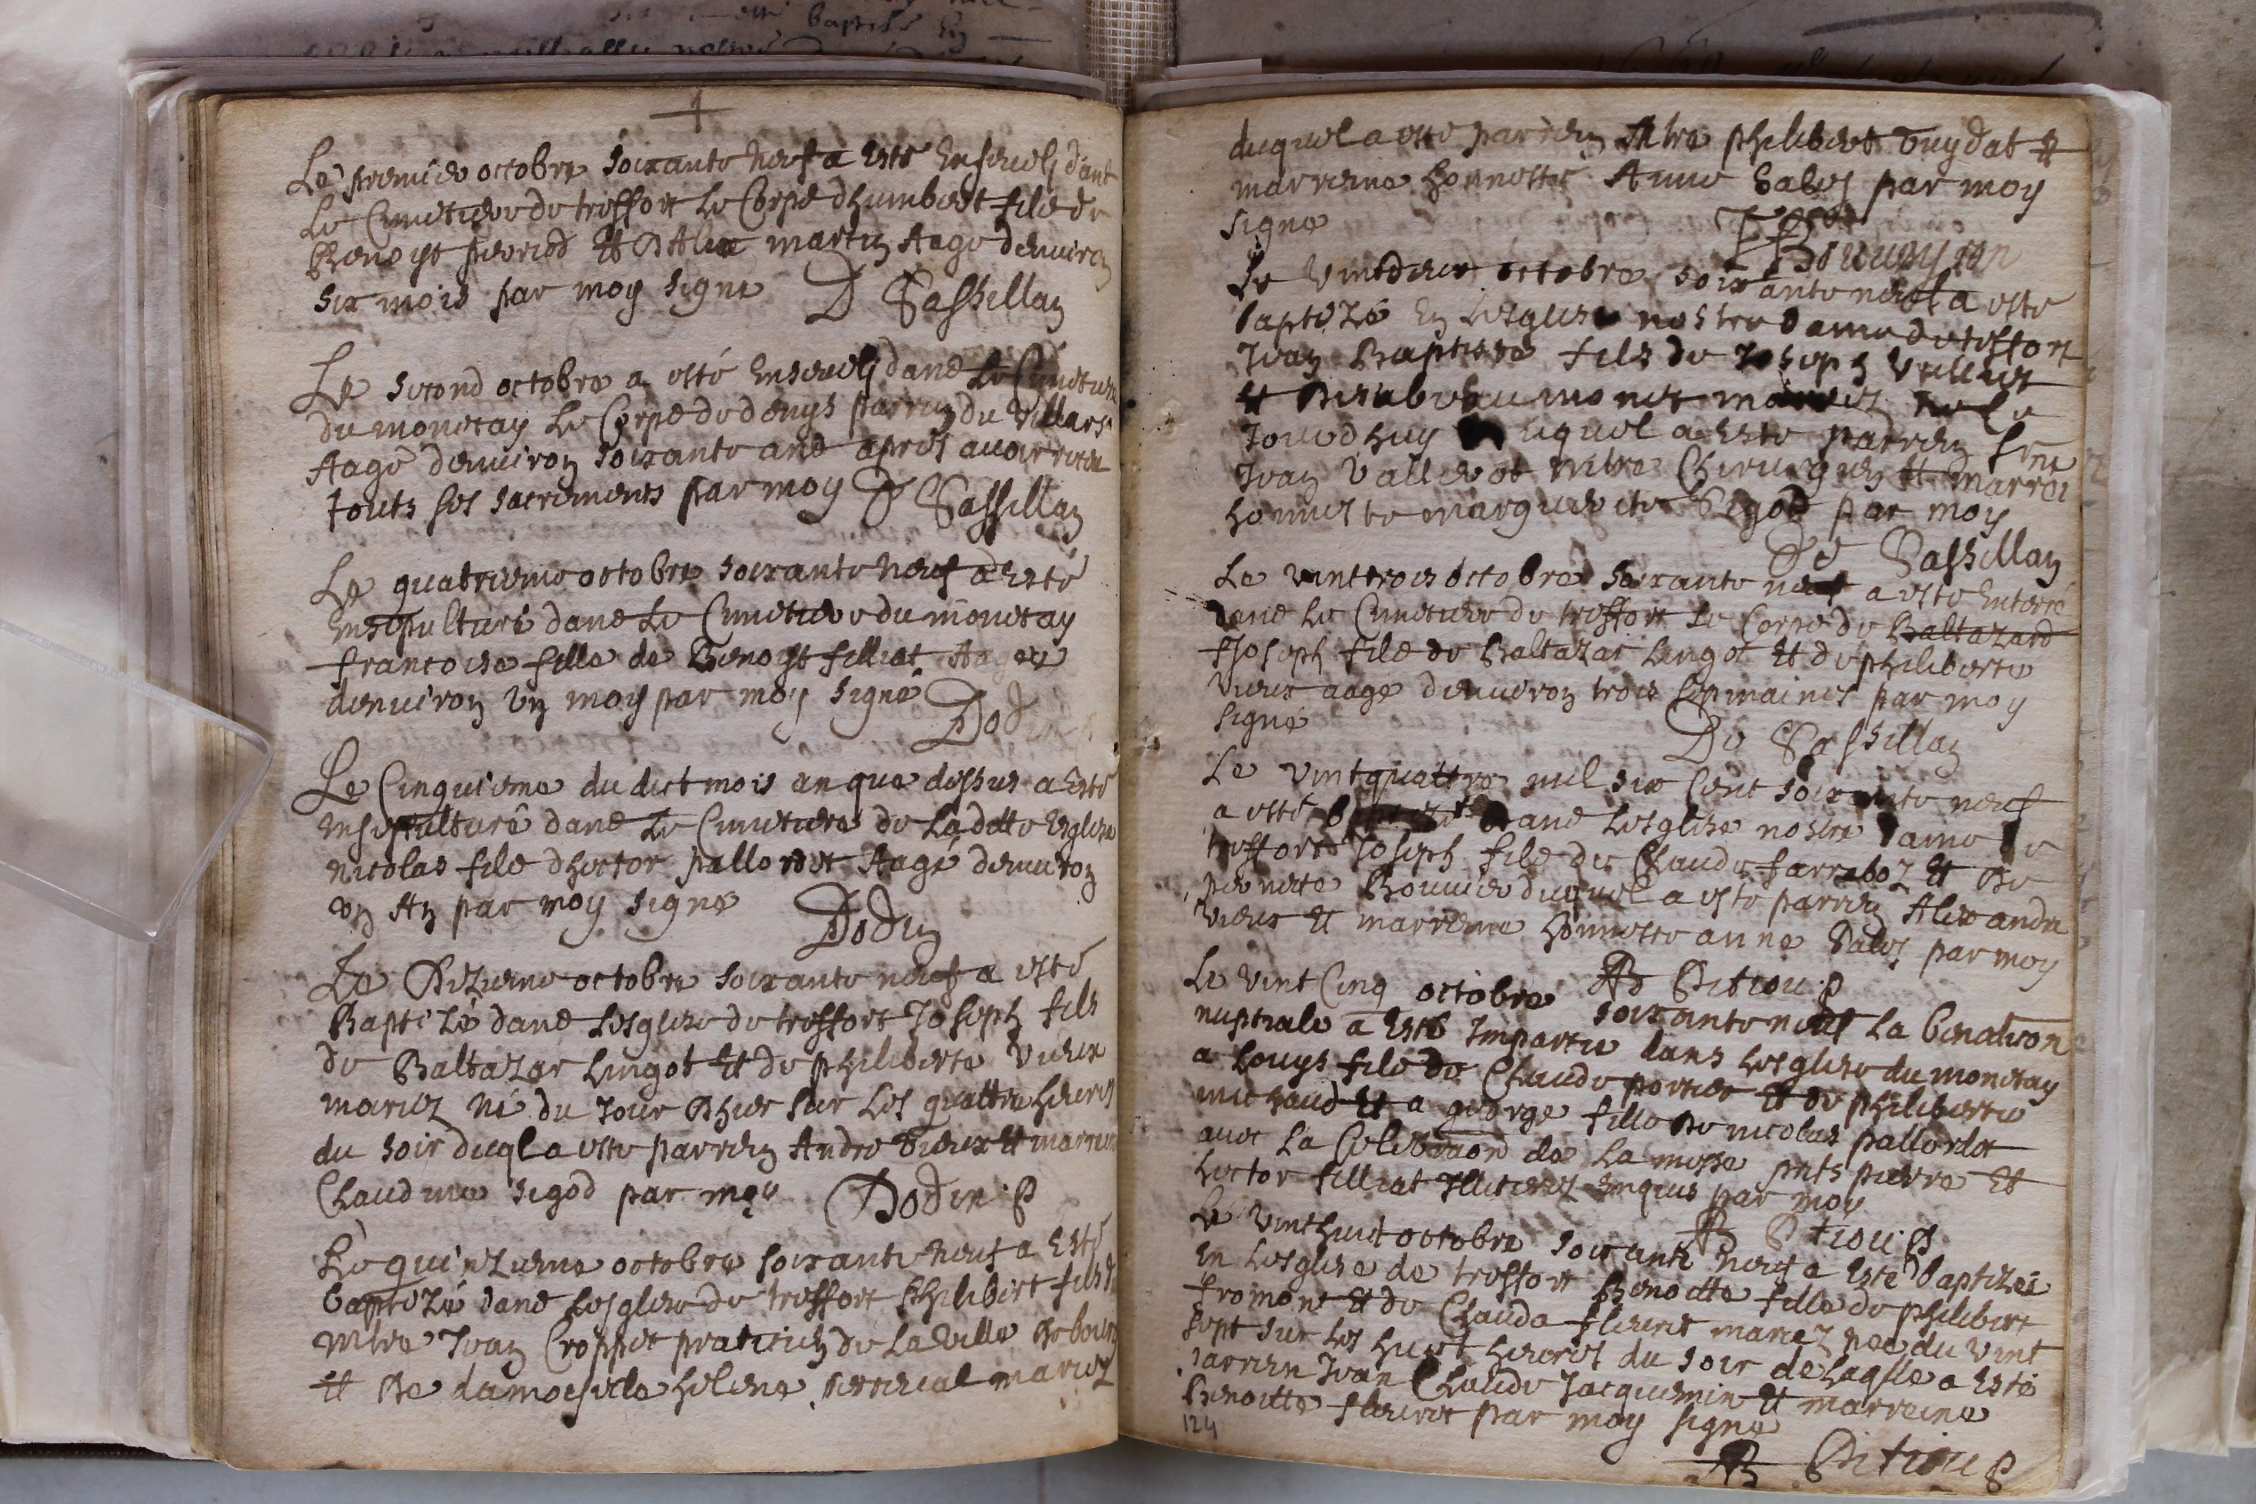 Le premier octobre soixante neuf a esté ensevely dans
Le Cimetiere de treffort Le Corps dhumbert fils de
Benoist perriod et d'Alix martin Aagé denviron
six mois par moy signé D Sassillan
Le second octobre a esté ensevely dans Le Cimetiere
du monetay Le Corps de denys parrin du Villars
Aagé denviron soixante ans apres avoir receu
touts ses sacrements par moy D Sassillan
Le quatrieme octobre soixante neuf a esté
ensepulturé dans Le Cimetiere du monetay
francoise fille de Benoist filliat Aagee
denviron un moy par mo signé
Dodin
Le Cinquieme du dict mois an que dessus a esté
ensepulturé dans Le Cimetiere de La ditte Esglise
nicolas fils dhector pallordet Aagé denviron
un An par moy signé
Dodin
Le Dizieme octobre soixante neuf a esté
Baptizé dans Lesglise de treffort Joseph fils
de Baltazar Lingot et de philiberte vieux
mariez né du jour dhier sur Les quattre heures
du soir duql a esté parrein Andre vieux et marreine
Claudine sigod par moy Dodin P
Le quinzieme octobre soixante neuf a esté
baptizé dans Lesglise de treffort Philibert fils de
mtre Jean Cropet praticien de La ville de bourg
et de damoiselle helene perreal mariez
duquel a esté parrein mtre philibert Cuydat et
marreine honneste Anne Sales par moy
signé
Le Vintdeux octobre soixante neuf a esté
baptizé en Lesglise nostre dame de treffort
Jean Baptiste fils de Joseph Vullet
et monet mariez
Jourdhuy duquel a esté parrein
Jean Vallerot mtre Chirurgien et marrei
honneste marguerite Sigod par moy
De Sassillan
Le vinttrois octobre soixante neuf a esté enterré
dans Le Cimetiere de treffort Le Corps de Baltazard
Joseph fils de Baltazar Lingot et de philiberte
vieux aagé denviron trois sepmaines par moy
signé
De Sassillan
Le Vintquattre mil six Cent soixante neuf
a esté baptizé dans Lesglise nostre dame de
treffort Joseph fils de Claude farraboz et de
pernete Bouvier duquel a esté parrein Alexandre
vieux et marreine honneste anne Sales par moy
Ditiou P
Le vint Cinq octobre soixante neuf La benedison
nuptiale a esté Impartie dans Lesglise du monetay
a Louys fils de Claude portier et de philiberte
michaud et a george fille de nicolas pallordet
avec La Celebraon de La messe pnts pierre et
hector filliat Illiterez enquis par moy
Ditiou P
Le vinthuit octobre soixante neuf a esté baptizée
en Lesglise de treffort Benoitte fille de philibert
fromont et de Clauda fleuret mariez nee du vint
sept sur Les huit heures du soir de Laqlle a esté
parrein Jean Claude Jacquemin et marreine
Benoitte fleuret par moy signé
Ditiou P
124